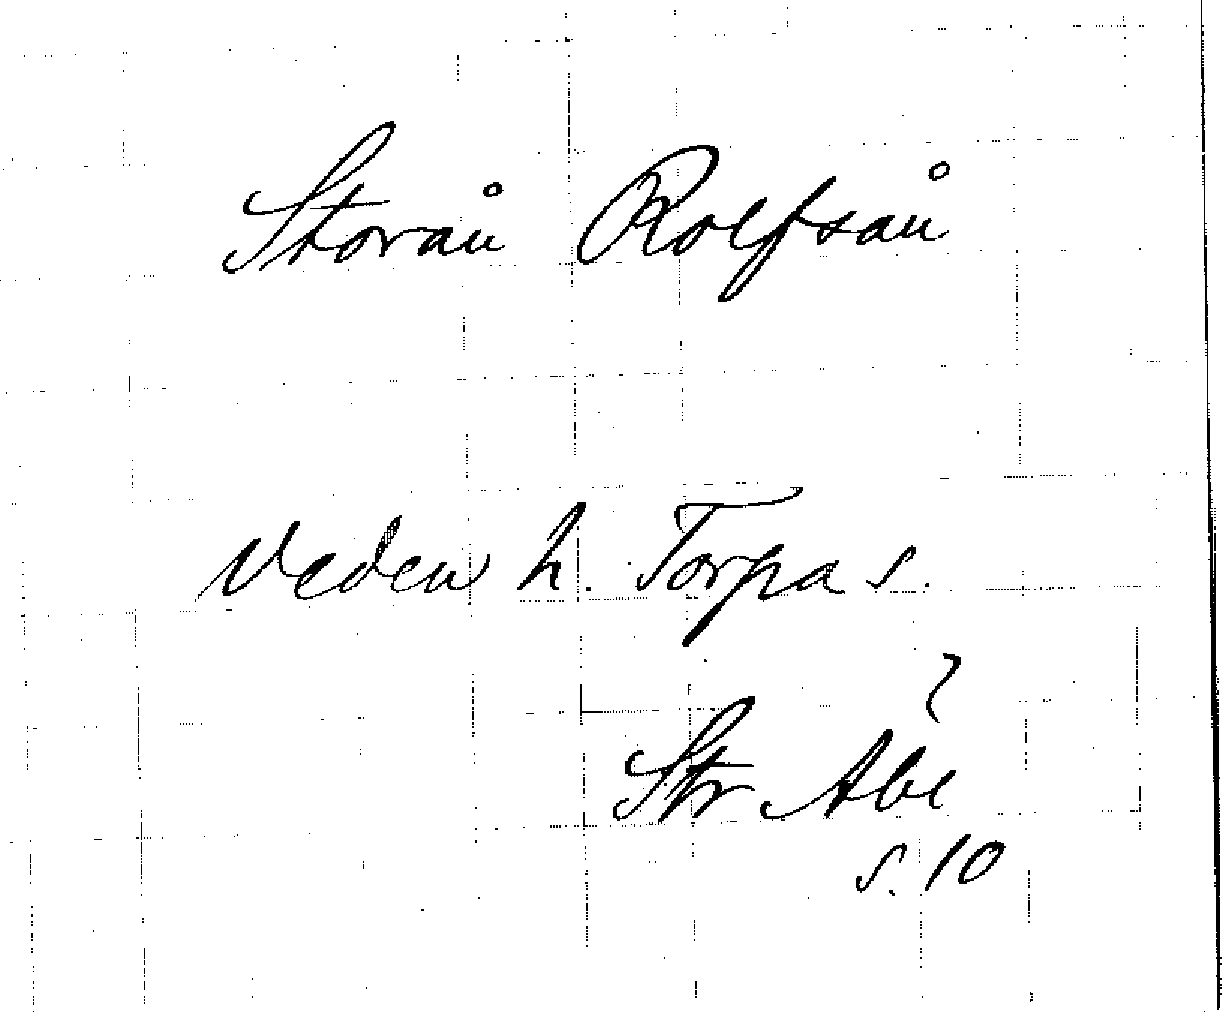 Storån Rolfsån
Veden h. Torpa s.
?
Str Abe
s. 10